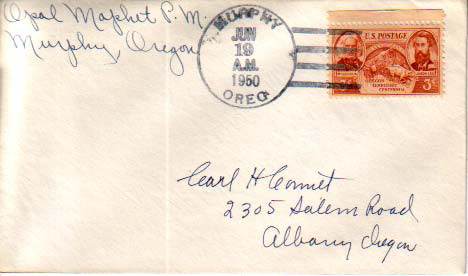 Opal Maphet P.M.
Murphy, Oregon
MURPHY
JUN
19
A.M.
1950
OREG
U.S. POSTAGE
OREGON
TERRITORY
CENTENNIAL
3¢
Carl H Comet
2305 Salem Road
Albany Oregon